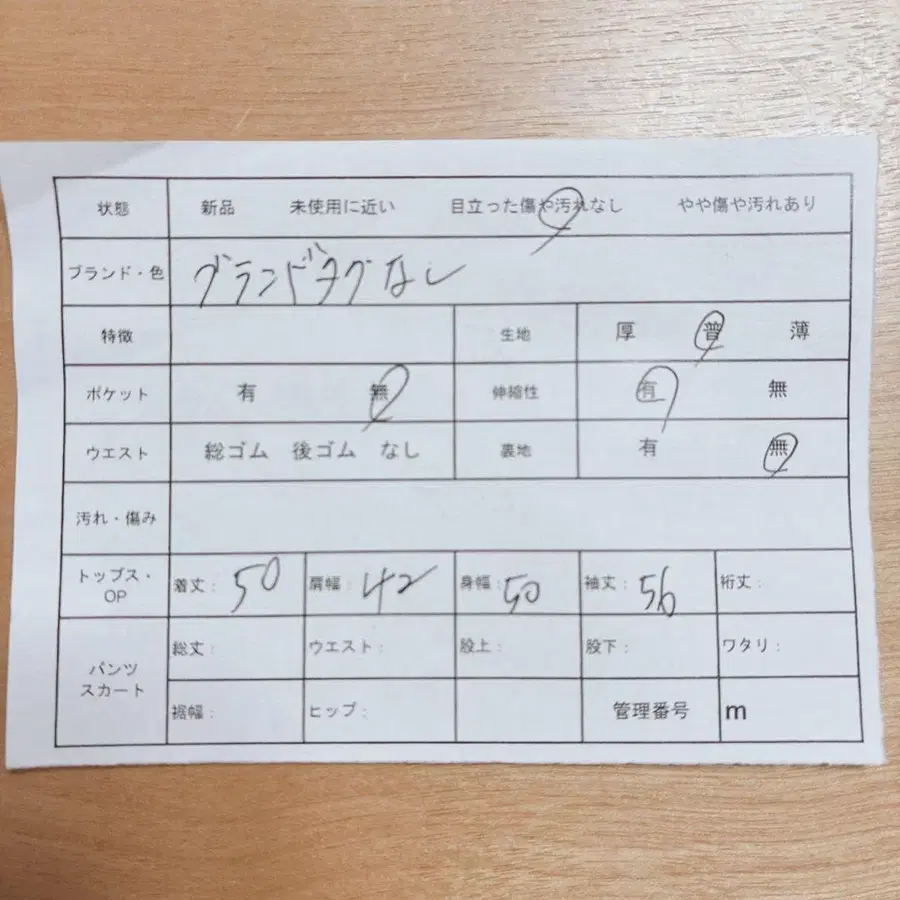 状態 新品 未使用に近い 目立った傷や汚れなし やや傷や汚れあり
ブランド・色 ブランドタグなし
特徴 生地 厚 普 薄
ポケット 有 無 伸縮性 有 無
ウエスト 総ゴム 後ゴム なし 裏地 有 無
汚れ・傷み
トップス・
OP
着丈: 50 肩幅: 42 身幅: 50 袖丈: 56 裄丈:
パンツ
スカート
総丈: ウエスト: 股上: 股下: ワタリ:
裾幅: ヒップ: 管理番号 m